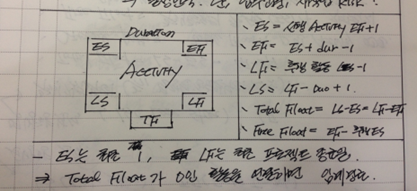 Duration
ES EFi
Activity
LS LFi
TFi
ES = 선행 Activity EFi+1
EFi = Es + dur -1
LFi = 후행 활동 LS-1
LS = LFi - Duo + 1.
Total Float = LS-ES = LFi-EFi
Free Float = EFi - 후행ES
- ES는 1, LFi는 프로젝트 종료일.
⇒ Total Float가 0인 활동을 연결하면